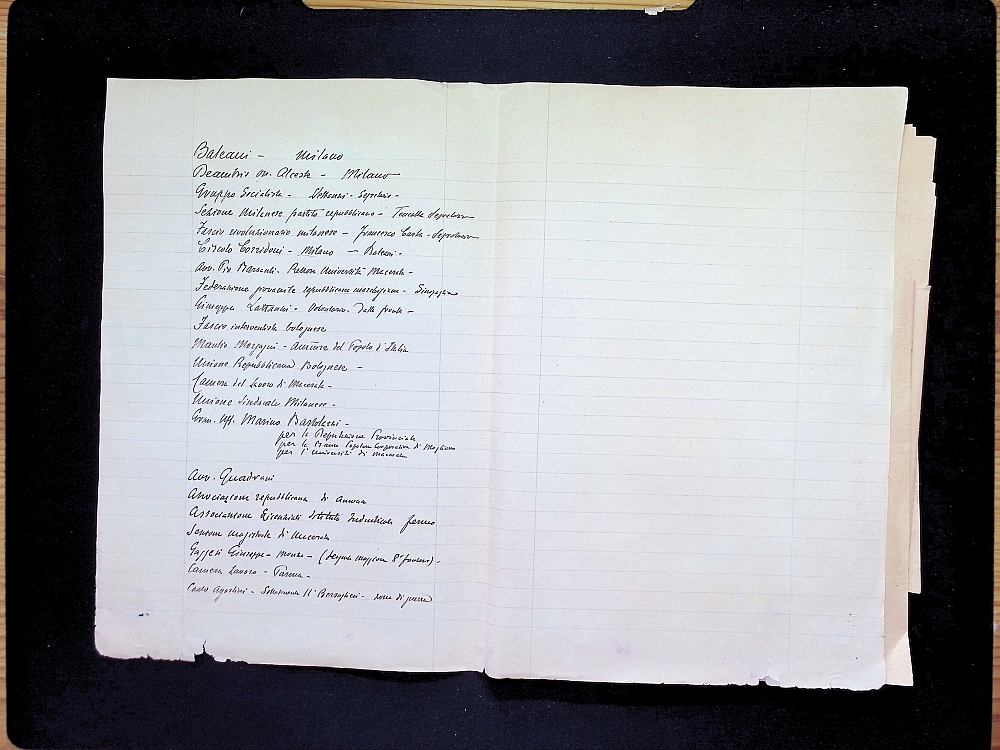 Baleani - Milano
Deambris on. Alceste - Milano
Gruppo Socialista - Segretario -
Sezione Milanese partito repubblicano - Segretario
Fascio rivoluzionario milanese - Francesco - Segretario
Circolo Corridoni - Milano - Baleani -
Avv. Pio Barsanti. Rettore Università Macerata -
Federazione giovanile repubblicana marchigiana - Senigaglia
Giuseppe Lattanzi - Volontario. Dalla fronte -
Fascio interventista bolognese
Manlio Morgagni - Amm.re del Popolo d'Italia
Unione Repubblicana Bolognese -
Camera del Lavoro di Macerata -
Unione Sindacale Milanese -
Comm. Uff. Marino Bartolazzi -
per la Deputazione Provinciale
per la Banca Popolare Cooperativa di Mogliano
per l'università di Macerata
Avv. Quadrani
Associazione repubblicana di Ancona
Associazione Licenziati Istituto Industriale Fermo
Sezione magistrale di Macerata
Giuseppe - Monza - (
Camera Lavoro - Parma -
Carlo Agostini - Sottotenente 11° Bersaglieri - zona di guerra